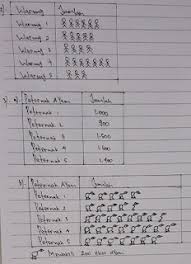 Warung Jumlah
Warung 1
Warung 2
Warung 3
Warung 4
Warung 5
3. a) Peternak Ayam Jumlah
Peternak 1 1.000
Peternak 2 800
Peternak 3 1.600
Peternak 4 1.200
Peternak 5 1.400
Peternak Ayam Jumlah
Peternak 1
Peternak 2
Peternak 3
Peternak 4
Peternak 5
Mewakili 200 ekor ayam